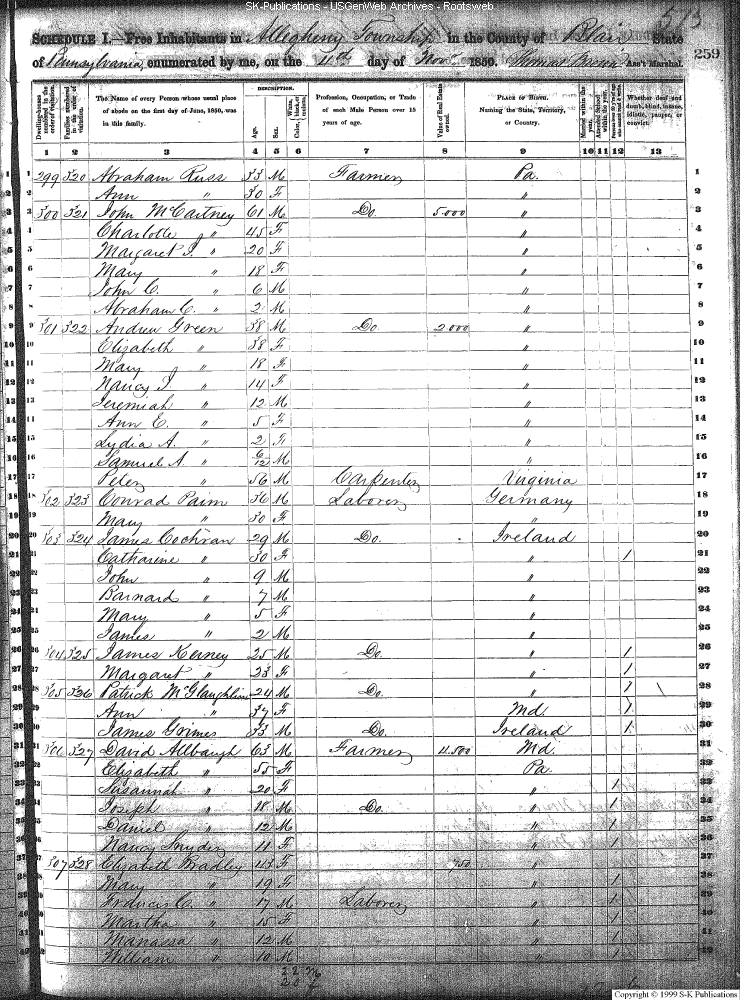 SK-Publications - USGenWeb Archives - Rootsweb
513
SCHEDULE I.—Free Inhabitants in Allegheny Township in the County of Blair State
of Pennsylvania, enumerated by me, on the 4th day of Novr 1850. Thomas Ass't Marshal.
259
Dwelling-houses numbered in the order of visitation.
Families numbered in the order of visitation.
The Name of every Person whose usual place of abode on the first day of June, 1850, was in this family.
DESCRIPTION.
Age.
Sex.
White, black, or mulatto.
Profession, Occupation, or Trade of each Male Person over 15 years of age.
Value of Real Estate owned.
PLACE OF BIRTH. Naming the State, Territory, or Country.
Married within the year.
Attended School within the year.
Whether deaf and dumb, blind, insane, idiotic, pauper, or convict.
1 2 3 4 5 6 7 8 9 10 11 12 13
1 299 320 Abraham Russ 33 M Farmer Pa. 1
2 Ann " 30 F " 2
3 300 321 John McCartney 61 M Do. 5000 " 3
4 Charlotte " 45 F " 4
5 Margaret J. " 20 F " 5
6 Mary " 18 F " 6
7 John C. " 6 M " 7
8 Abraham C. " 2 M " 8
9 301 322 Andrew Green 38 M Do. 2000 " 9
10 Elizabeth " 38 F " 10
11 Mary " 18 F " 11
12 Nancy J. " 14 F " 12
13 Jeremiah " 12 M " 13
14 Ann E. " 5 F " 14
15 Lydia A. " 2 F " 15
16 Samuel A. " 6/12 M " 16
17 Peter " 56 M Carpenter Virginia 17
18 302 323 Conrad Paim 36 M Laborer Germany 18
19 Mary " 30 F " 19
20 303 324 James Cochran 29 M Do. Ireland 20
21 Catharine " 30 F " 1 21
22 John " 9 M " 22
23 Barnard " 7 M " 23
24 Mary " 5 F " 24
25 James " 2 M " 25
26 304 325 James Kerney 25 M Do. " 1 26
27 Margaret " 23 F " 1 27
28 305 326 Patrick McGlaughlin 24 M Do. " 1 28
29 Ann " 37 F Md. 1 29
30 James Grimes 33 M Do. Ireland 1 30
31 306 327 David Allbaugh 63 M Farmer 4500 Md. 31
32 Elizabeth " 55 F Pa. 32
33 Susannah " 20 F " 1 33
34 Joseph " 18 M Do. " 1 34
35 Daniel " 12 M " 1 35
36 Nancy Snyder 11 F " 1 36
37 307 328 Elizabeth Bradley 43 F 750 " 37
38 Mary " 19 F " 1 38
39 Francis C. " 17 M Laborer " 1 39
40 Martha " 15 F " 1 40
41 Manassa " 12 M " 1 41
42 William " 10 M " 1 42
Copyright © 1999 S-K Publications